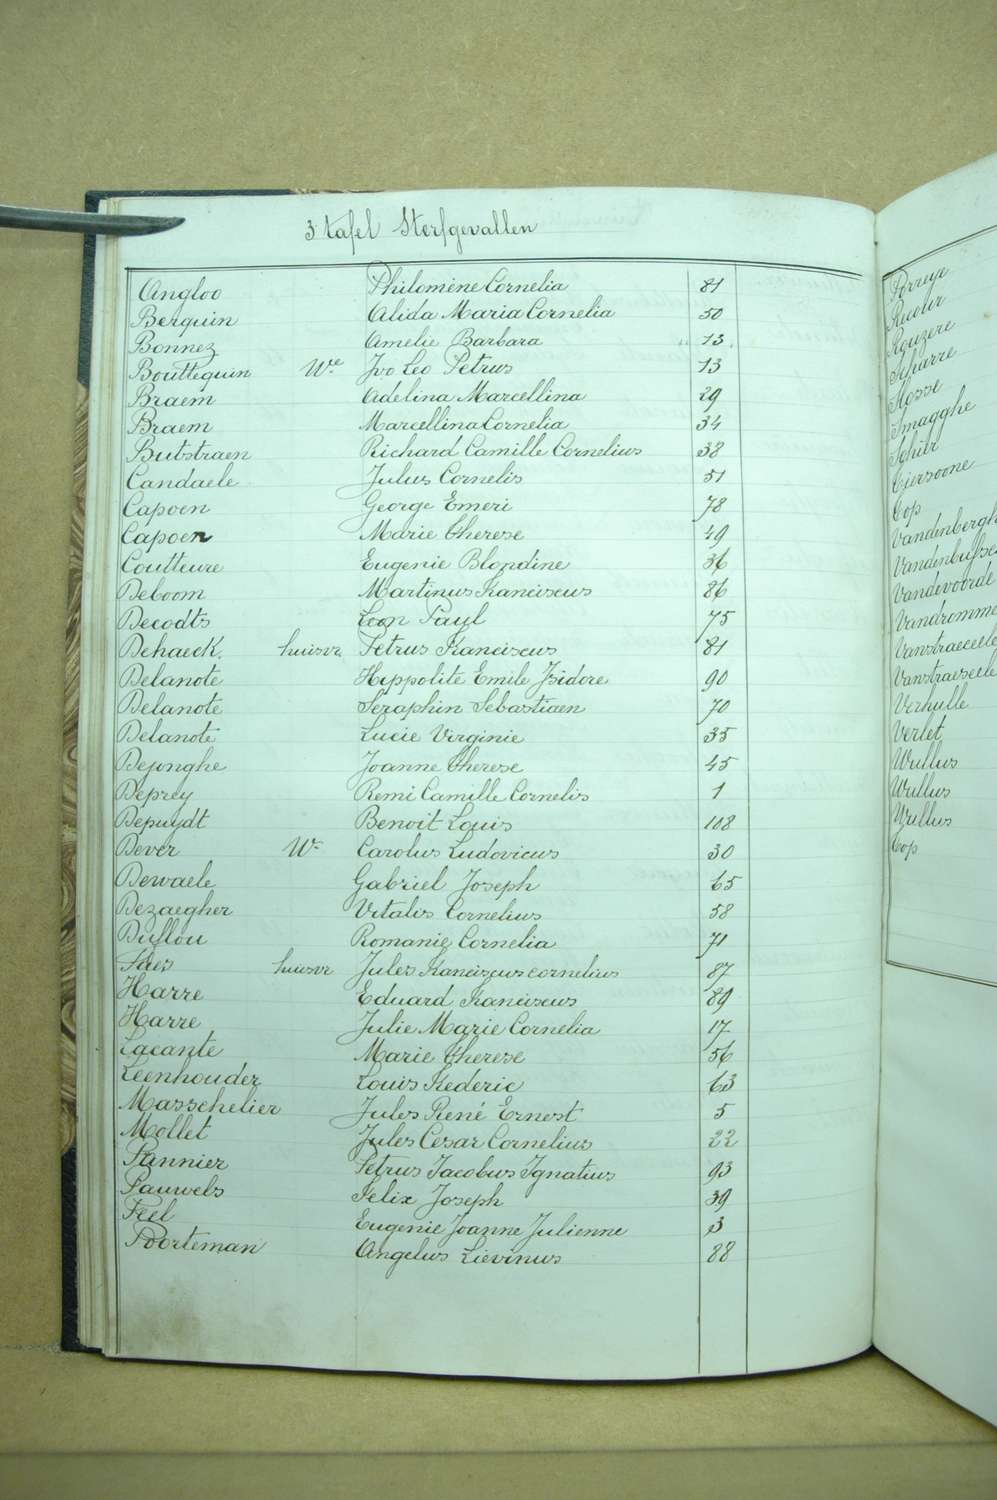 3 tafel Sterfgevallen
Angloo Philomène Cornelia 81
Berquin Alida Maria Cornelia 50
Bonnez Amelie Barbara 13
Bouttequin We Ivo Leo Petrus 13
Braem Adelina Marcellina 29
Braem Marcellina Cornelia 34
Bubstraen Richard Camille Cornelius 38
Candaele Julus Cornelis 51
Capoen George Emeri 78
Capoen Marie Therese 49
Coutteure Eugenie Blondine 36
Deboom Martinus Franciscus 86
Decodts Leon Pavyl 75
Dehaeck huisvr Petrus Franciscus 81
Delanote Hippolite Emile Isidore 90
Delanote Seraphin Sebastiaen 70
Delanote Lucie Virginie 35
Dejonghe Joanne Therese 45
Deprey Remi Camille Cornelis 1
Depuydt Benoit Louis 108
Dever W. Carolus Ludovicus 30
Dewaele Gabriel Joseph 65
Dezaegher Vitalis Cornelius 58
Duflou Romanie Cornelia 71
Faes huisvr Jules Franciscus cornelius 87
Harre Eduard Franciscus 89
Harre Julie Marie Cornelia 17
Lacante Marie Therese 56
Leenhouder Louis Frederic 63
Masschelier Jules René Ernest 5
Mollet Jules Cesar Cornelius 22
Pannier Petrus Jacobus Ignatius 93
Pauwels Felix Joseph 39
Peel Eugenie Joanne Julienne 3
Poorteman Angelus Lievinus 88
Porreye
Ricour
Rouzere
Scharre
Slosse
Smagghe
Tjersoone
Top
Vandenbergh
Vandenbussc
Vandevoorde
Vandromme
Vanstraecele
Vanstraeseele
Verhulle
Verlet
Wullus
Wullus
Wullus
Top